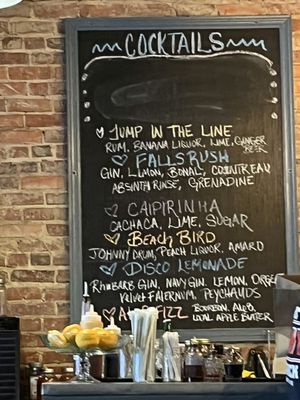 COCKTAILS
JUMP IN THE LINE
RUM, BANANA LIQUOR, LIME, GINGER BEER
FALLS RUSH
GIN, LIMON, BONAL, COINTREAU
ABSINTH RINSE, GRENADINE
CAIPIRINHA
CACHACA, LIME, SUGAR
BEACH BIRD
JOHNNY DRUM, PEACH LIQUOR, AMARO
DISCO LEMONADE
RHUBARB GIN, NAVY GIN, LEMON, ORGEAT
VELVET FALERNUM, PEYCHAUDS
FIZZ
BOURBON,
LOCAL APPLE BUTTER